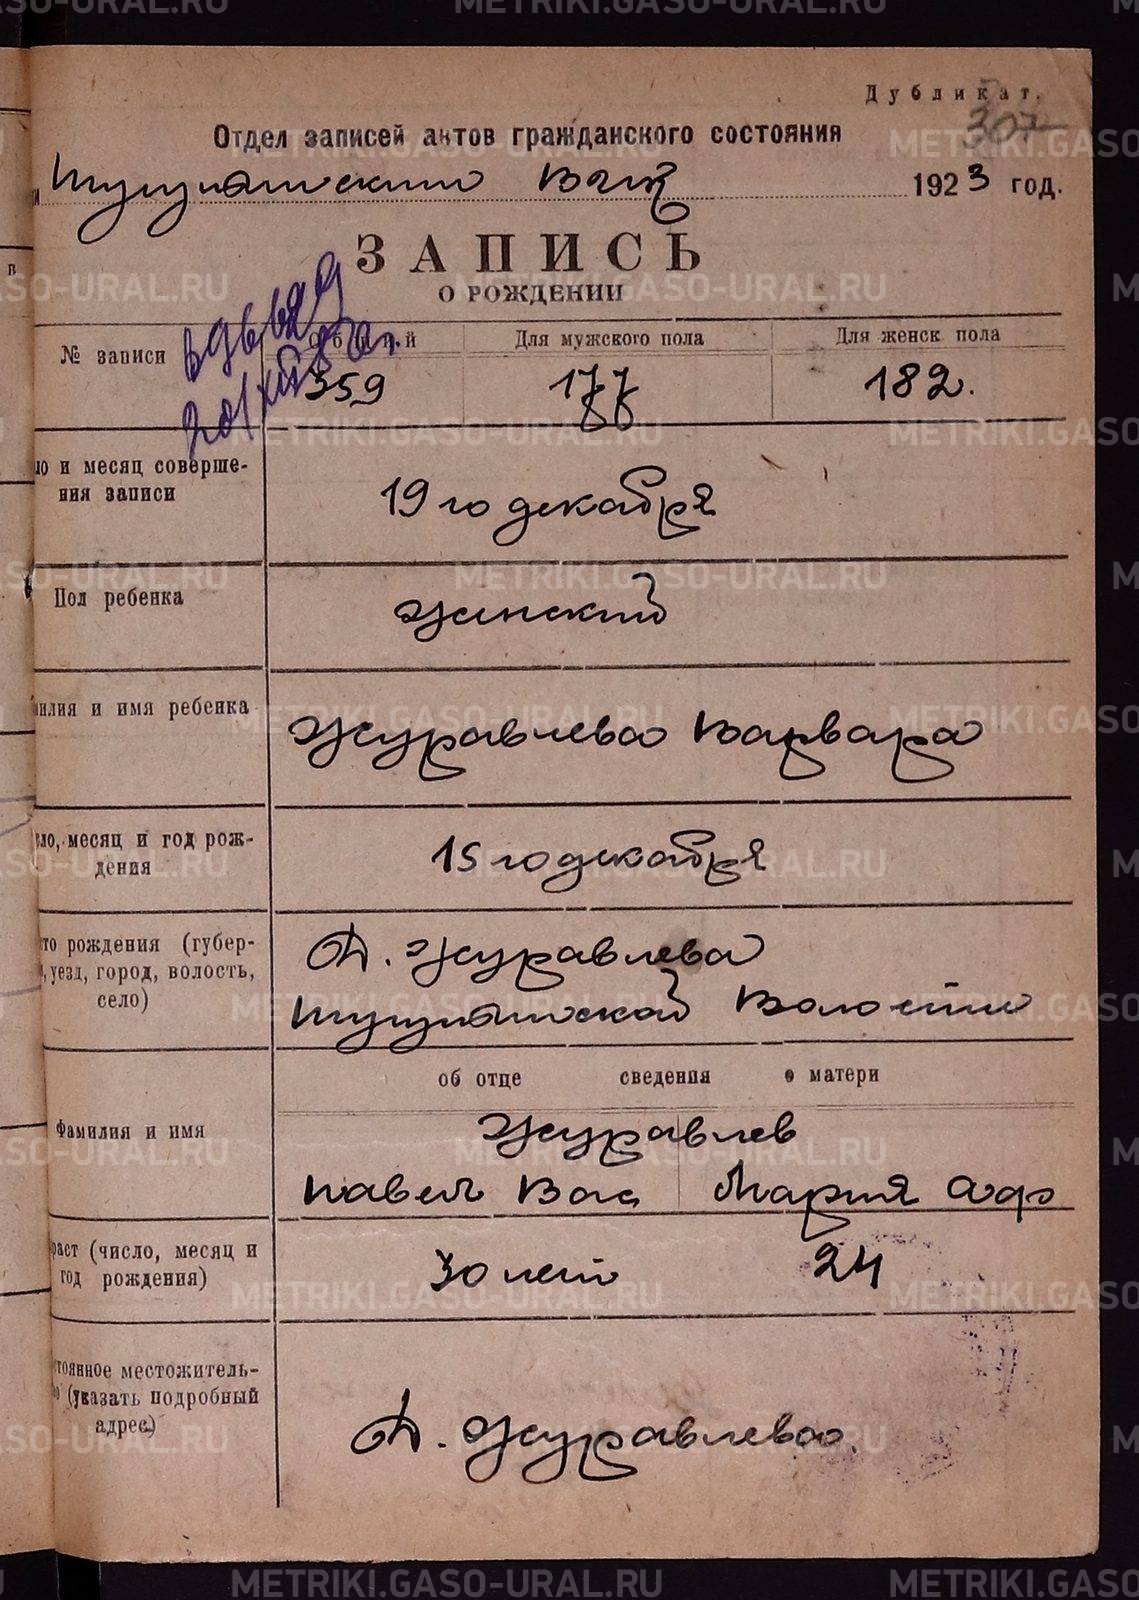 Дубликат.
307
Отдел записей актов гражданского состояния
Шутинским Вик 1923 год.
ЗАПИСЬ
О РОЖДЕНИИ
№ записи
Общий
Для мужского пола
Для женск пола
359
177
182.
ло и месяц соверше-
ния записи
19 го декабря
Пол ребенка
женский
милия и имя ребенка
Журавлева Варвара
ло, месяц и год рож-
дения
15 го декабря
то рождения (губер-
, уезд, город, волость,
село)
Д. Журавлева
Волости
об отце сведения о матери
Фамилия и имя
Журавлев
Павел Вас Мария Афо
раст (число, месяц и
год рождения)
30 лет 24
тоянное местожитель-
о (указать подробный
адрес)
Д. Журавлева.
METRIKI.GASO-URAL.RU